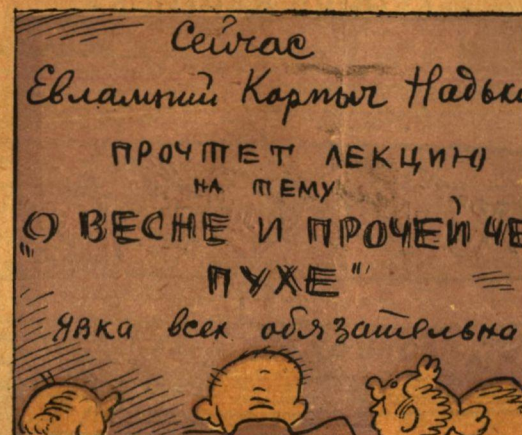 Сейчас
Евлампий Карпыч Надьк
ПРОЧТЕТ ЛЕКЦИЮ
НА ТЕМУ
"О ВЕСНЕ И ПРОЧЕЙ ЧЕ
ПУХЕ"
Явка всех обязательна